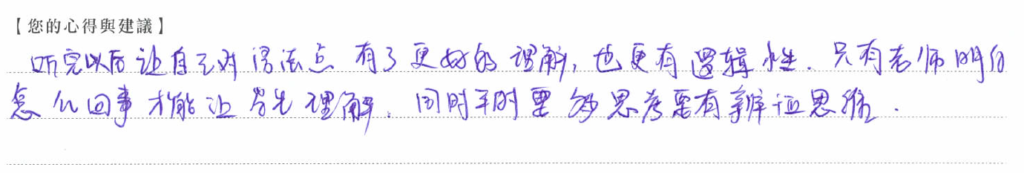 【您的心得與建議】
听完以后让自己对语法点有了更好的理解,也更有逻辑性.只有老师明白
怎么回事才能让学生理解.同时平时要多思考要有辩证思维.